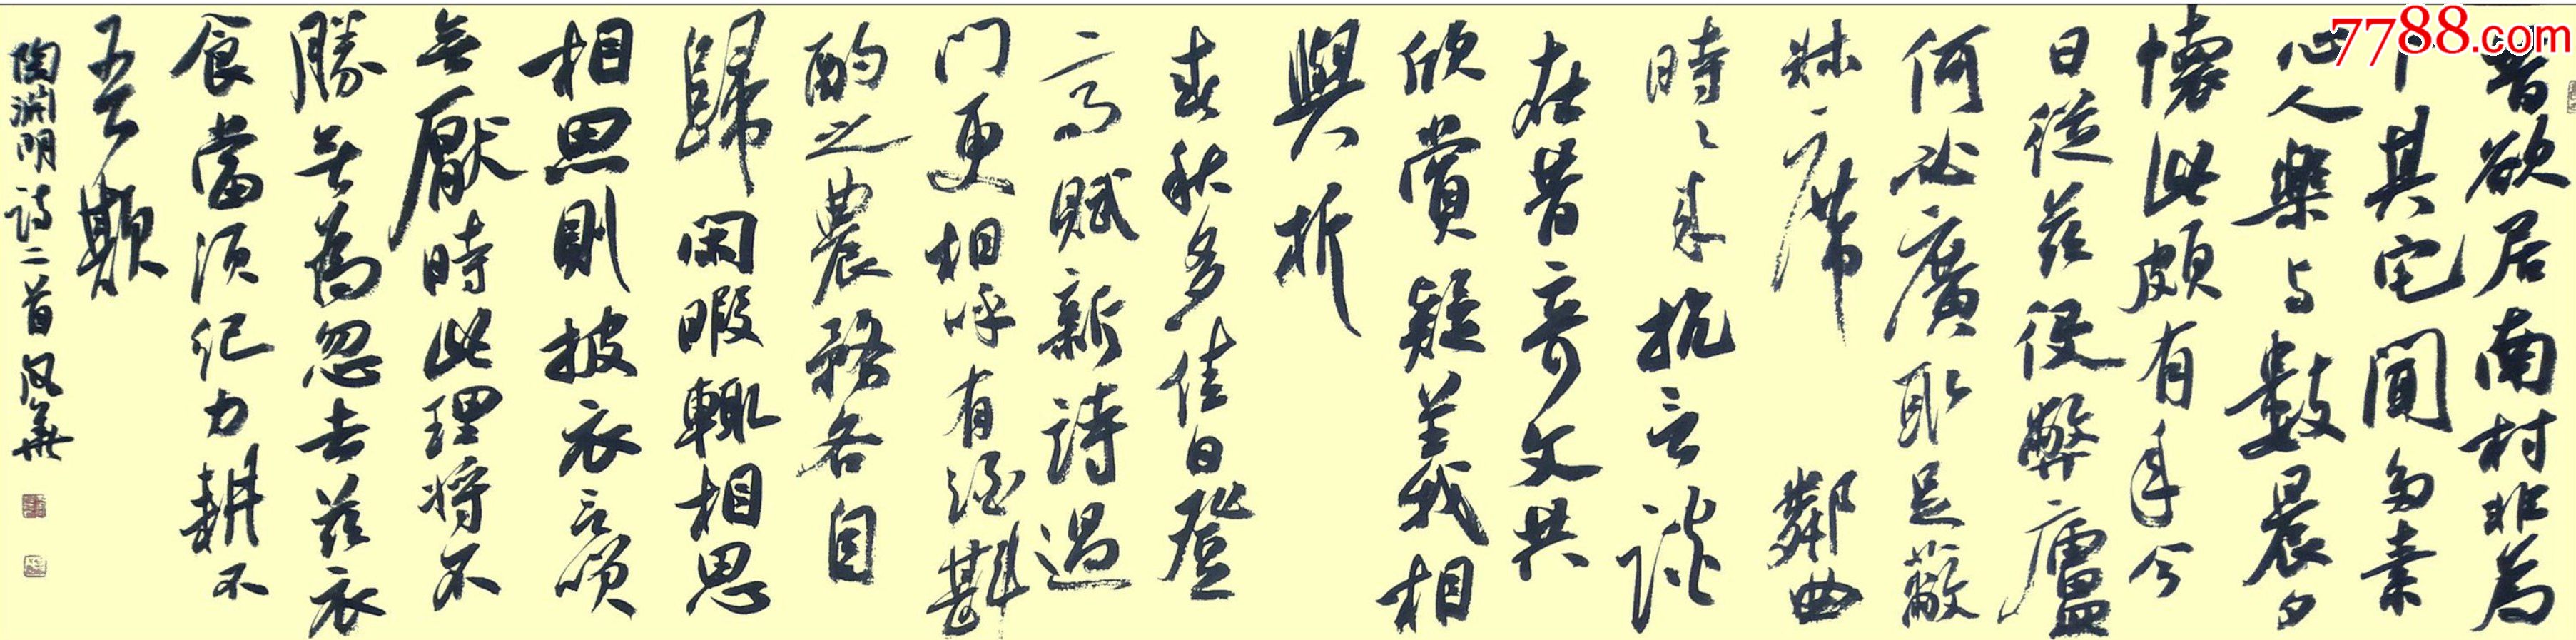 7788.com
昔欲居南村非為
卜其宅聞多素
心人樂与數晨夕
懷此頗有年今
日從茲役弊廬
何必廣取足蔽
牀席鄰曲
時々來抗言談
在昔奇文共
欣賞疑義相
與析
春秋多佳日登
高賦新詩過
門更相呼有酒斟
酌之農務各自
歸閑暇輒相思
相思則披衣言笑
無厭時此理將不
勝無為忽去茲衣
食當須紀力耕不
吾欺
陶淵明詩二首